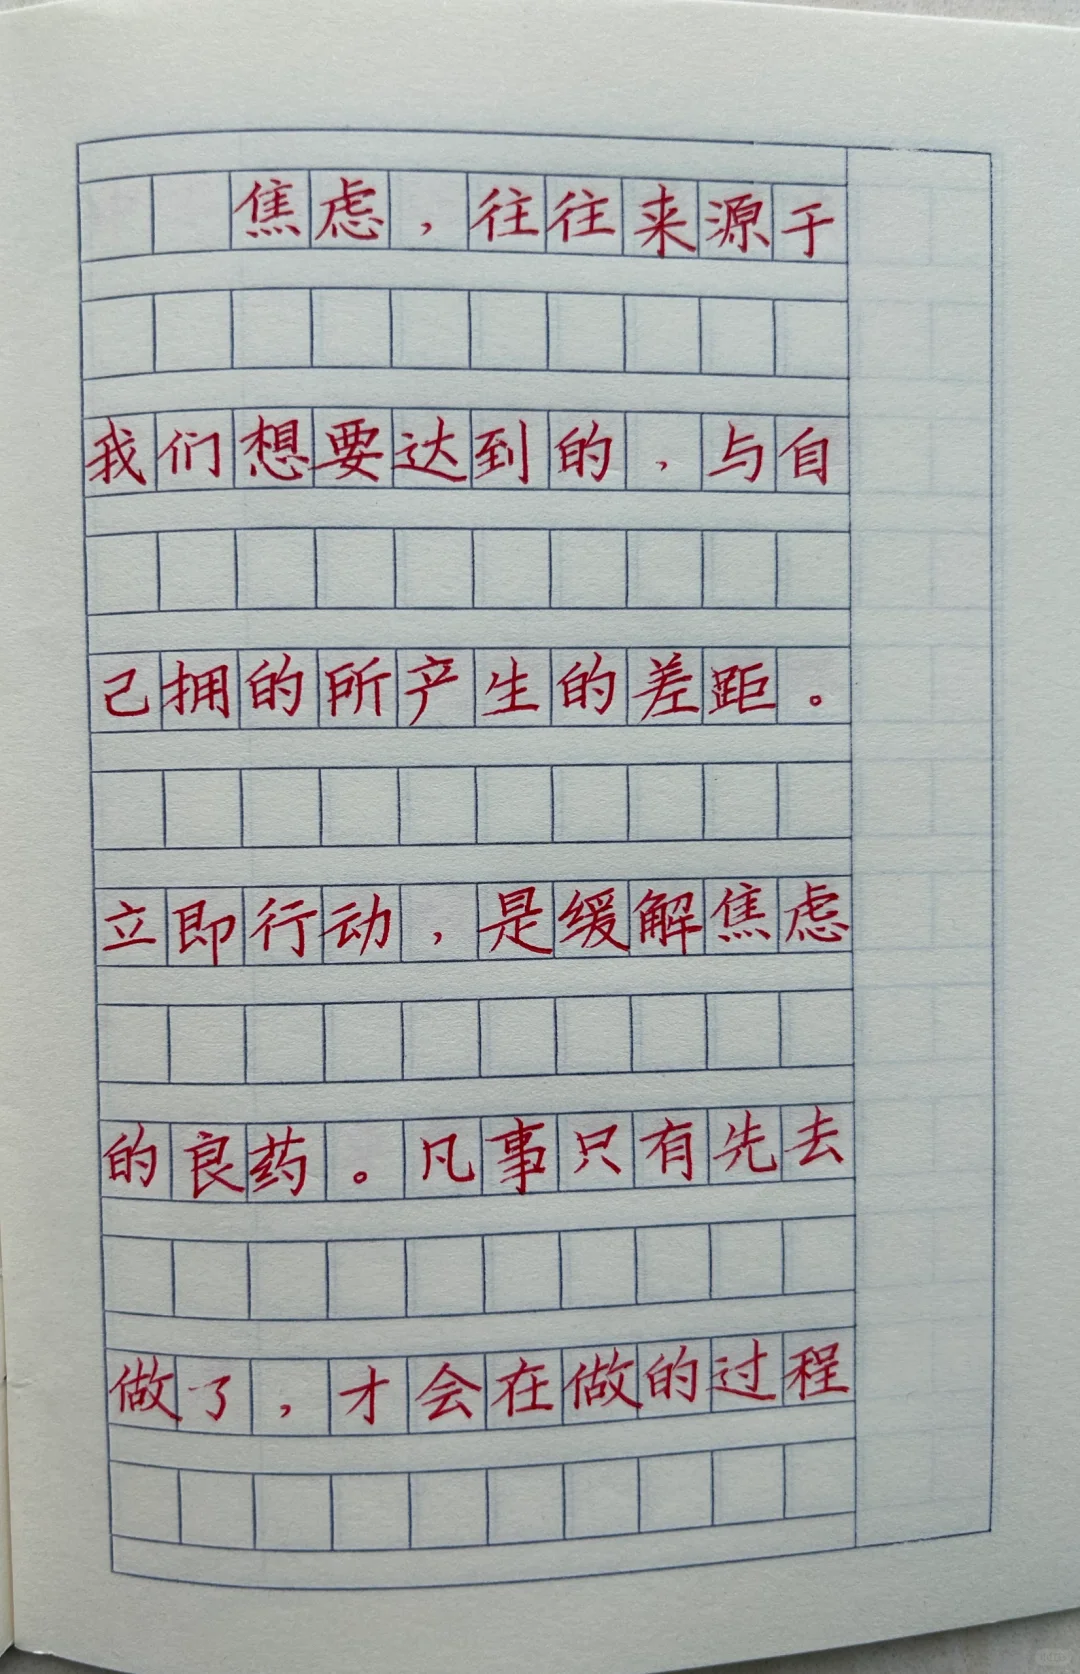 焦虑，往往来源于
我们想要达到的，与自
己拥的所产生的差距。
立即行动，是缓解焦虑
的良药。凡事只有先去
做了，才会在做的过程